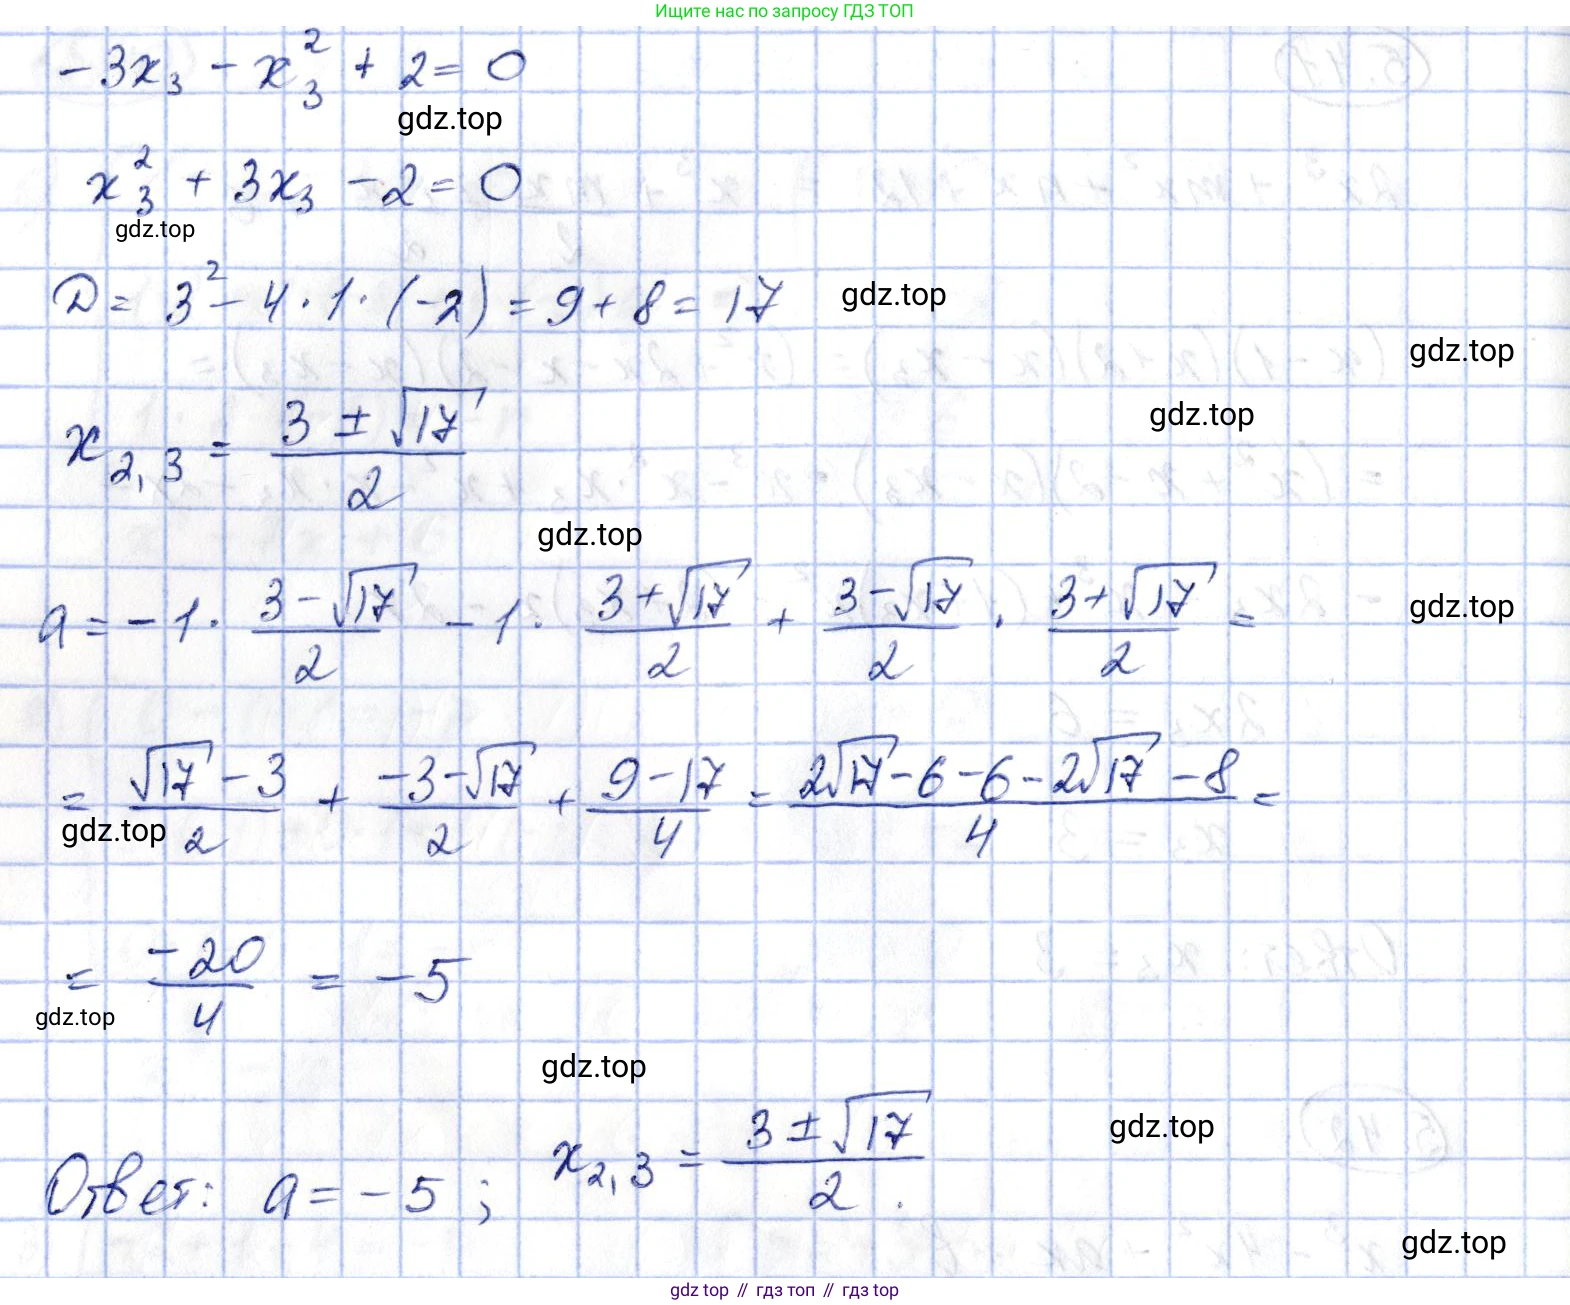 Ищите нас по запросу ГДЗ ТОП
-3x₃ - x₃² + 2 = 0
gdz.top
x₃² + 3x₃ - 2 = 0
gdz.top
D = 3² - 4 · 1 · (-2) = 9 + 8 = 17 gdz.top
gdz.top
gdz.top
x₂,₃ = (3 ± √17)/2
gdz.top
a = -1 · (3 - √17)/2 - 1 · (3 + √17)/2 + (3 - √17)/2 · (3 + √17)/2 = gdz.top
= (√17 - 3)/2 + (-3 - √17)/2 + (9 - 17)/4 = (2√17 - 6 - 6 - 2√17 - 8)/4 =
gdz.top
= -20/4 = -5
gdz.top
gdz.top
gdz.top
Ответ: a = -5; x₂,₃ = (3 ± √17)/2.
gdz.top
gdz top // гдз топ // гдз top